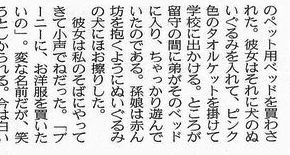 のペット用ベッドを買わさ
れた。彼女はそれに犬のぬ
いぐるみを入れて、ピンク
色のタオルケットを掛けて
学校に出かける。ところが
留守の間に弟がそのベッド
に入り、ちゃっかり遊んで
いたのである。孫娘は赤ん
坊を抱くようにぬいぐるみ
の犬にほお擦りした。
彼女は私のそばにやって
きて小声でねだった。「プ
ーニーに、お洋服を買いた
いの」。変な名前だが、笑
うとしかられる。今は白い